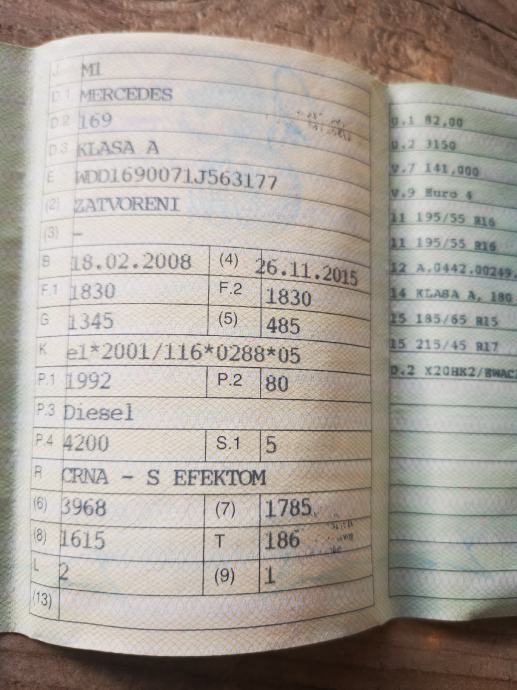 J M1
D.1 MERCEDES
D.2 169
D.3 KLASA A
E WDD1690071J563177
(2) ZATVORENI
(3) -
B 18.02.2008 (4) 26.11.2015
F.1 1830 F.2 1830
G 1345 (5) 485
K e1*2001/116*0288*05
P.1 1992 P.2 80
P.3 Diesel
P.4 4200 S.1 5
R CRNA - S EFEKTOM
(6) 3968 (7) 1785
(8) 1615 T 186
L 2 (9) 1
(13)
U.1 82,00
U.2 3150
V.7 141,000
V.9 Euro 4
11 195/55 R16
11 195/55 R16
12 A.0442.00249.
14 KLASA A, 180
15 185/65 R15
15 215/45 R17